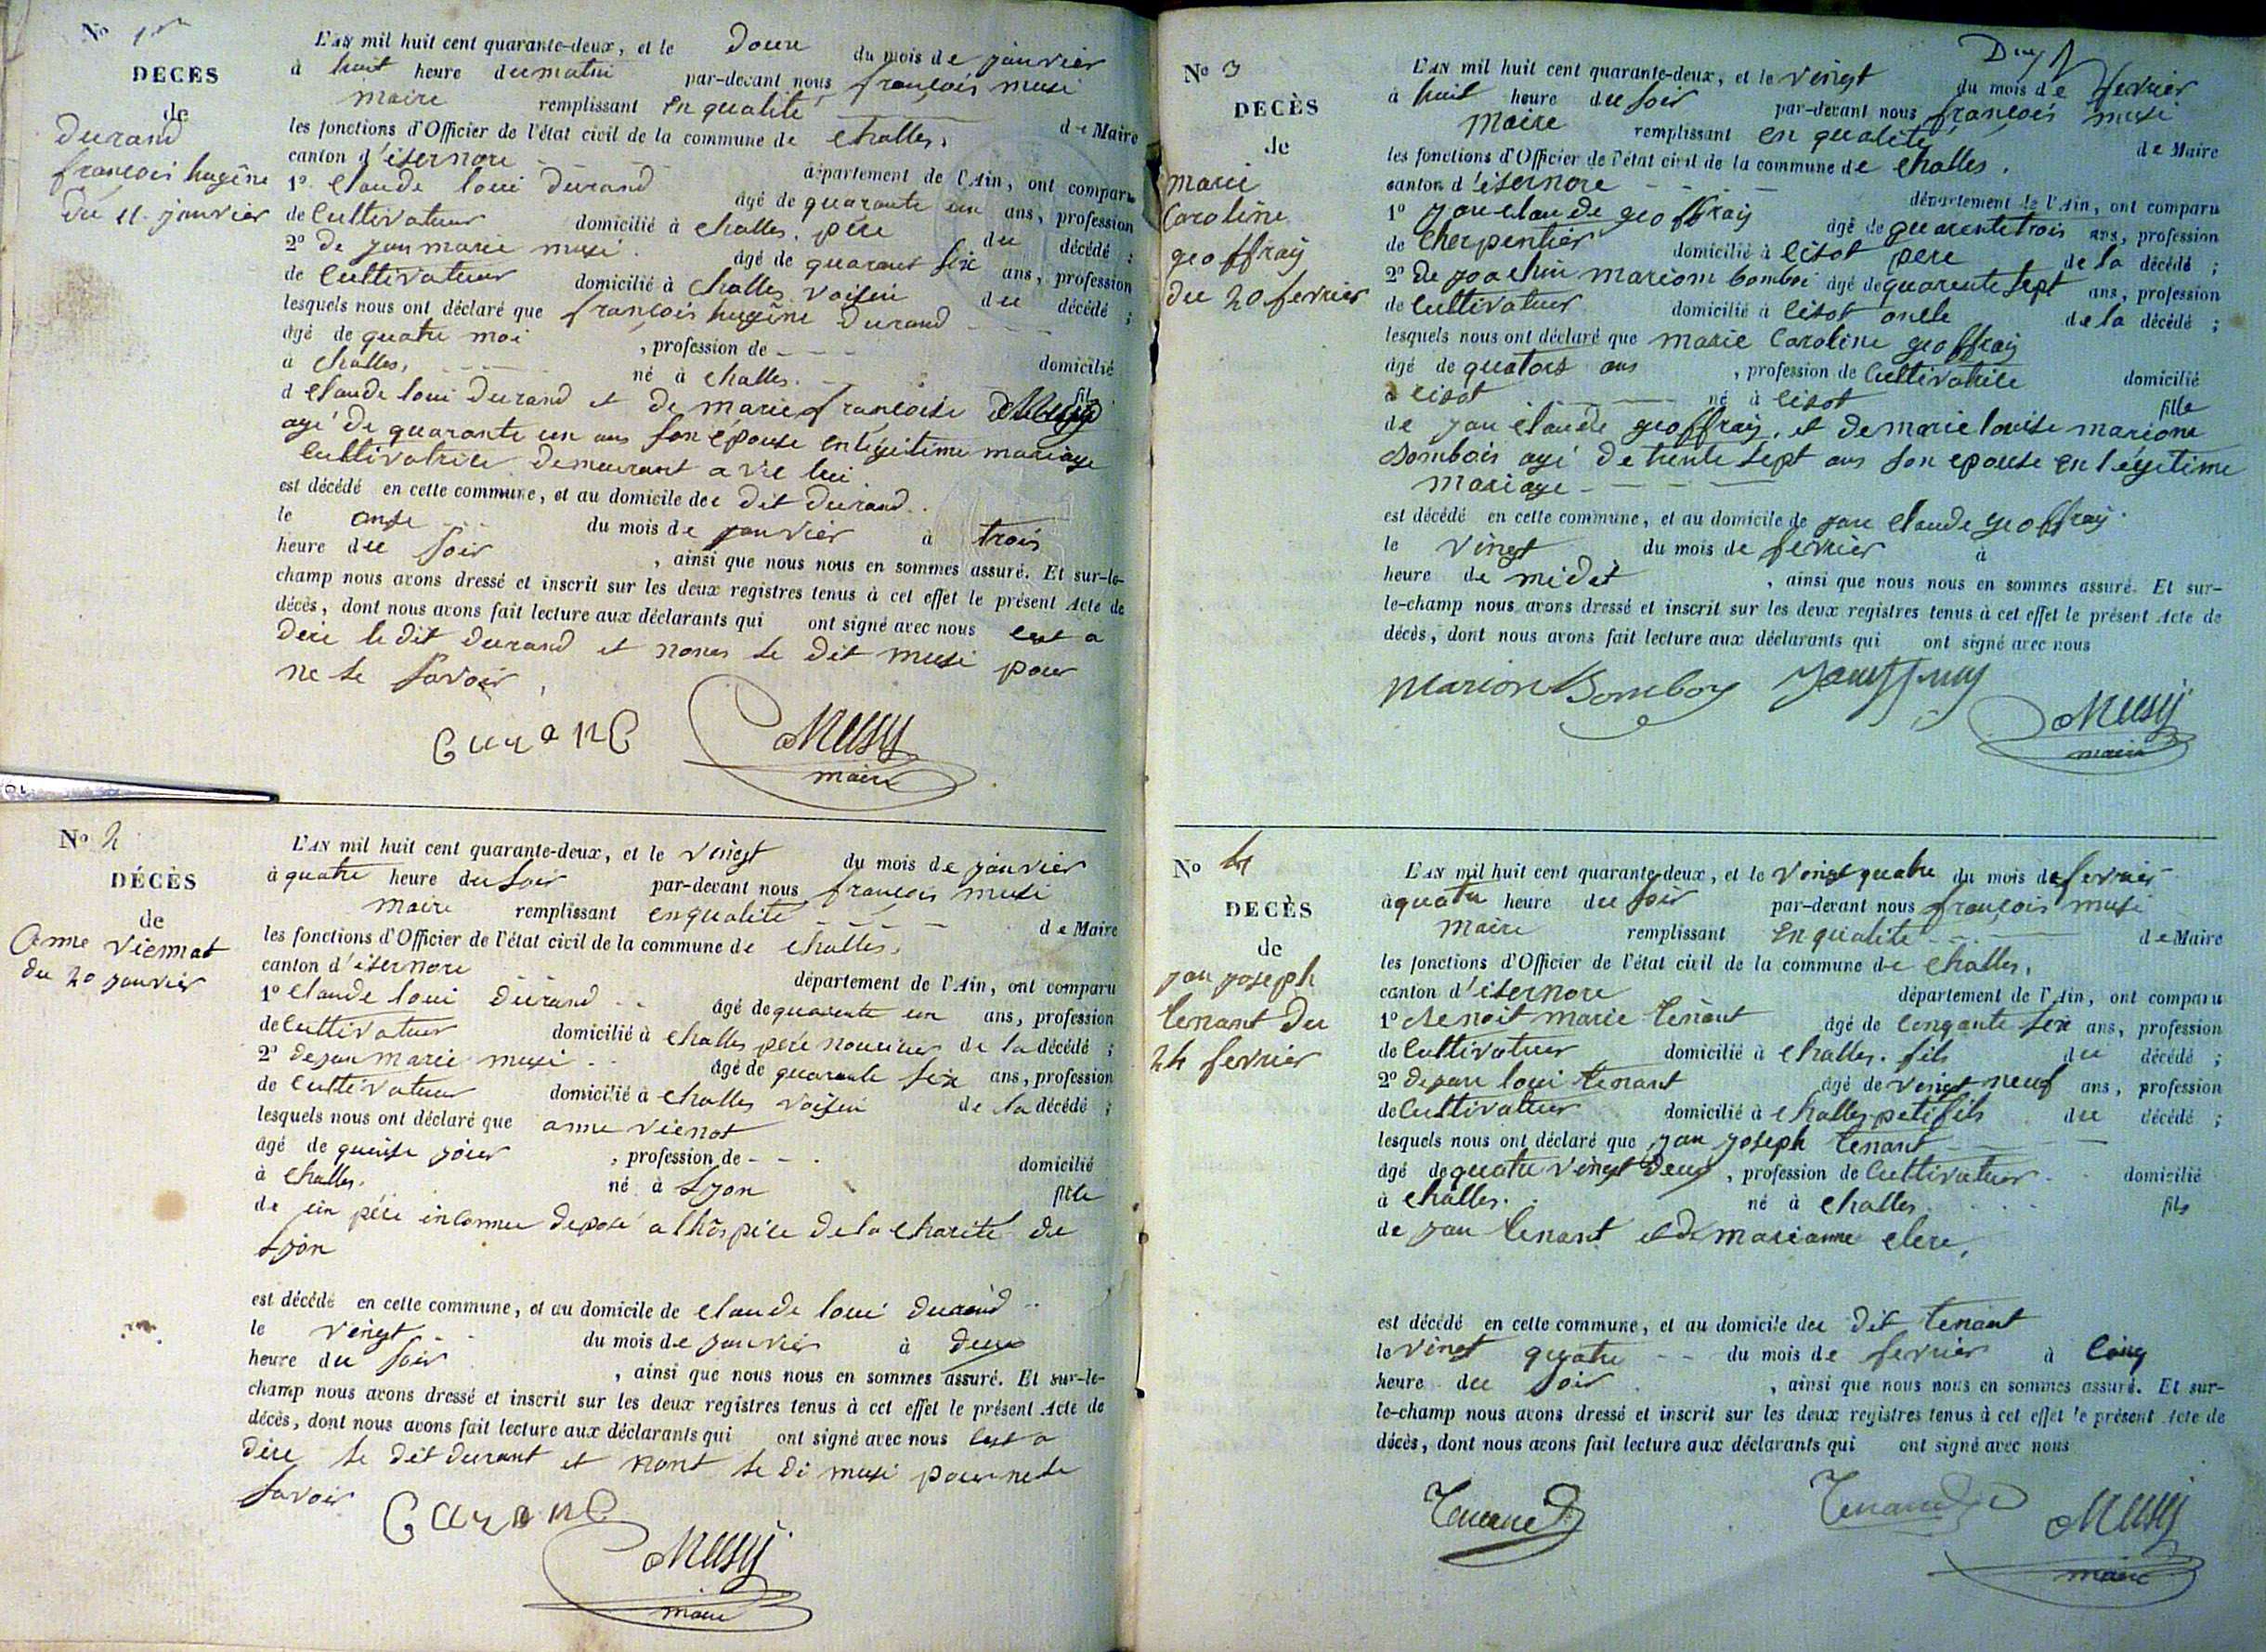 No 1er
DECÈS
de
durand
françois hugêne
du 11. janvier
L'AN mil huit cent quarante-deux, et le douze du mois de janvier
à huit heure du matin par-devant nous françois musi
maire remplissant en qualité de Maire
les fonctions d'Officier de l'état civil de la commune de challes,
canton d'isernore département de l'Ain, ont comparu
1º claude loui durand âgé de quarante un ans, profession
de cultivateur domicilié à challes, père du décédé ;
2º de jan marie musi. âgé de quarant six ans, profession
de cultivateur domicilié à challes voisin du décédé ;
lesquels nous ont déclaré que françois hugêne durand
âgé de quatre moi , profession de - - - domicilié
à challes, né à challes. fils
d claude loui durand et de marie françoise
agé de quarante un ans son épouse en légitime mariage
cultivatrice demeurant avec lui
est décédé en cette commune, et au domicile de dit durand.
le onse du mois de janvier à trois
heure du soir , ainsi que nous nous en sommes assuré. Et sur-le-
champ nous avons dressé et inscrit sur les deux registres tenus à cet effet le présent Acte de
décès, dont nous avons fait lecture aux déclarants qui ont signé avec nous cest a
dire le dit durand et nonas le dit musi pour
ne le savoir
Durand Musy
maire
No 2
DÉCÈS
de
Anne Viennat
du 20 janvier
L'AN mil huit cent quarante-deux, et le vingt du mois de janvier
à quatre heure du soir par-devant nous françois musi
maire remplissant en qualité de Maire
les fonctions d'Officier de l'état civil de la commune de challes,
canton d'isernore département de l'Ain, ont comparu
1º claude loui durand âgé de quarante un ans, profession
de cultivateur domicilié à challes père nouricier de la décédé ;
2º de jan marie musi âgé de quarante six ans, profession
de cultivateur domicilié à challes voisin de la décédé ;
lesquels nous ont déclaré que anne vienot
âgé de quinse jour , profession de - - . domicilié
à challes. né à Lyon fille
de un père inconnu deposé a lhospice de la charité de
Lyon
est décédé en cette commune, et au domicile de claude loui durand
le vingt du mois de janvier à deux
heure du soir , ainsi que nous nous en sommes assuré. Et sur-le-
champ nous avons dressé et inscrit sur les deux registres tenus à cet effet le présent Acte de
décès, dont nous avons fait lecture aux déclarants qui ont signé avec nous cest a
dire le dit durant et nont le di musi pour ne le
savoir
Durand
Musy
maire
No 3
DECÈS
de
marie
caroline
geoffray
du 20 fevrier
L'AN mil huit cent quarante-deux, et le vingt du mois de fevrier
à huit heure du soir par-devant nous françois musi
maire remplissant en qualité de Maire
les fonctions d'Officier de l'état civil de la commune de challes.
canton d'isernore département de l'Ain, ont comparu
1º jan claude geoffray âgé de quarente trois ans, profession
de cherpentier domicilié à cisot pere de la décédé ;
2º de joachin mariom bomboi âgé de quarente sept ans, profession
de cultivateur domicilié à cisot oncle de la décédé ;
lesquels nous ont déclaré que marie caroline geoffray
âgé de quators ans , profession de cultivatrice domicilié
à cisot né à cisot fille
de jan claude geoffray, et de marie louise marione
bombois agé de trente sept ans son epouse en légitime
mariage
est décédé en cette commune, et au domicile de jan claude geoffray.
le vingt du mois de fevrier à
heure de midit , ainsi que nous nous en sommes assuré. Et sur-
le-champ nous avons dressé et inscrit sur les deux registres tenus à cet effet le présent Acte de
décès, dont nous avons fait lecture aux déclarants qui ont signé avec nous
Marion Bomboy Musy
maire
No 4
DECÈS
de
jan joseph
tenant du
24 fevrier
L'AN mil huit cent quarante-deux, et le vingt quatre du mois de fevrier
à quatre heure du soir par-devant nous françois musi
maire remplissant en qualité de Maire
les fonctions d'Officier de l'état civil de la commune de challes,
canton d'isernore département de l'Ain, ont comparu
1º Benoit marie tenant âgé de cinqante six ans, profession
de cultivateur domicilié à challes. fils du décédé ;
2º de jan loui tenant âgé de vingt neuf ans, profession
de cultivateur domicilié à challes petifils du décédé ;
lesquels nous ont déclaré que jan joseph tenant
âgé de quatre vingt deux , profession de cultivateur domicilié
à challes. né à challes fils
de jan tenant et de marianne clere,
est décédé en cette commune, et au domicile du dit tenant
le vingt quatre du mois de fevrier à cinq
heure du soir , ainsi que nous nous en sommes assuré. Et sur-
le-champ nous avons dressé et inscrit sur les deux registres tenus à cet effet le présent Acte de
décès, dont nous avons fait lecture aux déclarants qui ont signé avec nous
Tenand Tenand Musy
maire